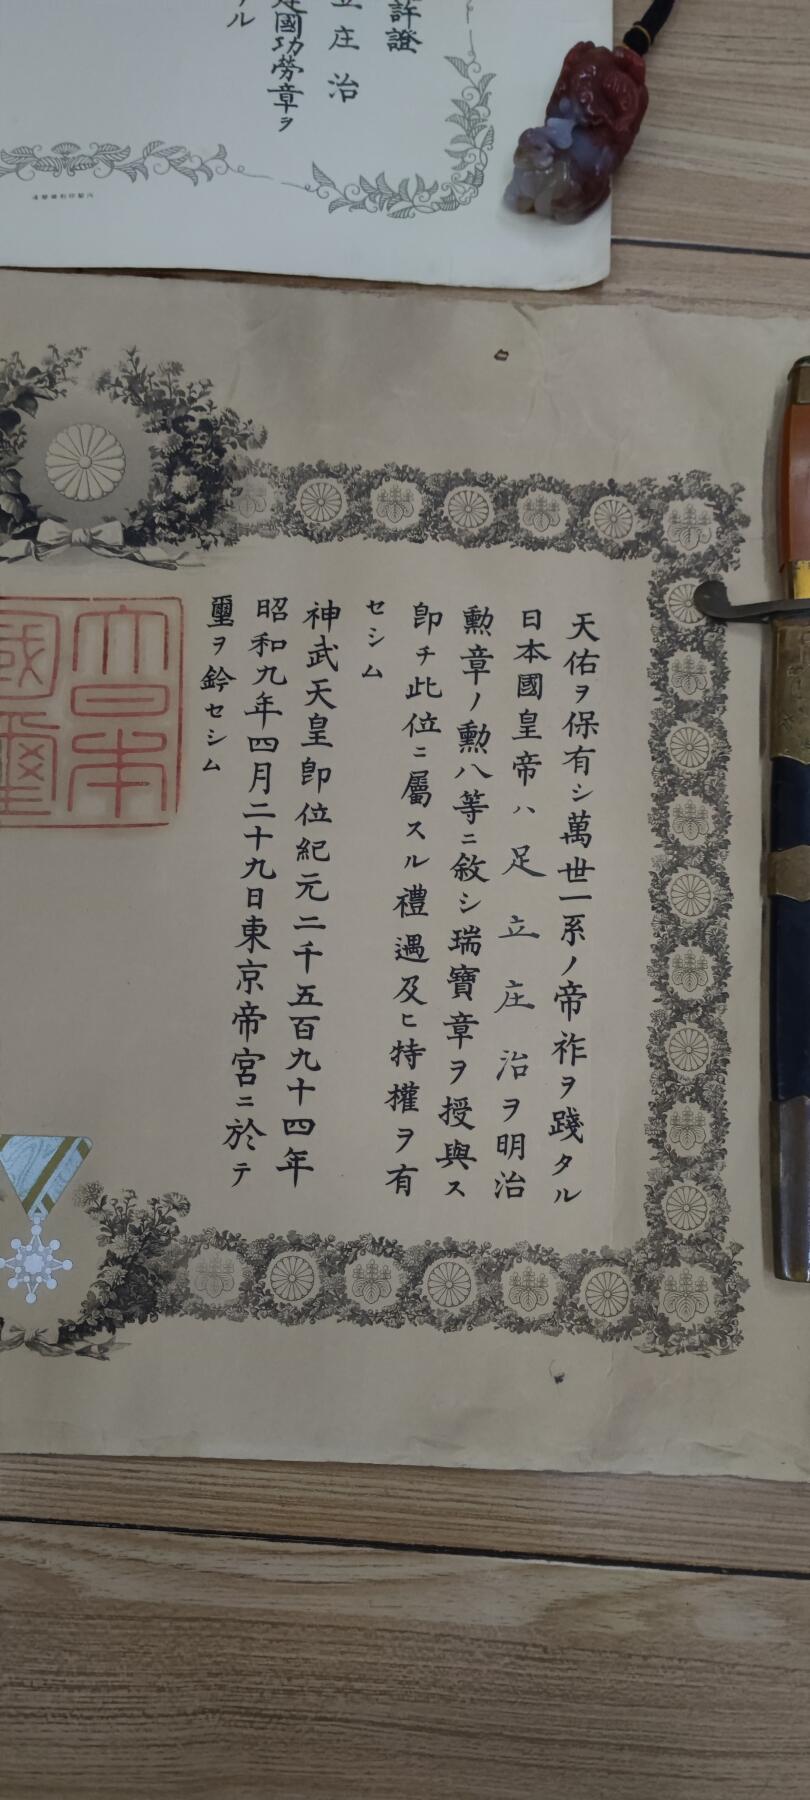 許證
立庄治
建國功勞章ヲ
ル
天佑ヲ保有シ萬世一系ノ帝祚ヲ踐タル
日本國皇帝ハ足立庄治ヲ明治
勲章ノ勲八等ニ敘シ瑞寶章ヲ授與ス
卽チ此位ニ屬スル禮遇及ヒ特權ヲ有
セシム
神武天皇卽位紀元二千五百九十四年
昭和九年四月二十九日東京帝宮ニ於テ
璽ヲ鈐セシム
大日本
國璽